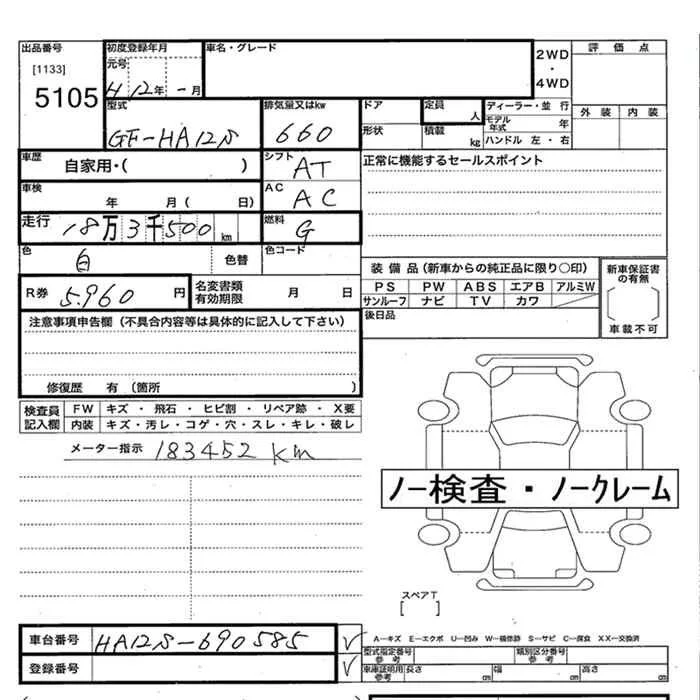 出品番号 初度登録年月 車名・グレード 2WD・4WD 評価点
[1133] 元号
5105 H12年 -月 外装 内装
型式 排気量又はkw ドア 定員 人 ディーラー・並行
GF-HA12S 660 形状 積載 kg モデル年式 年
ハンドル 左・右
車歴 自家用・( ) シフト AT 正常に機能するセールスポイント
車検 年 月( 日) AC AC
走行 18万3千500 km 燃料 G
色 白 色替 色コード
装備品(新車からの純正品に限り○印) 新車保証書の有無
R券 5.960円 名変書類有効期限 月 日 PS PW ABS エアB アルミW
サンルーフ ナビ TV カワ 車載不可
注意事項申告欄(不具合内容等は具体的に記入して下さい) 後日品
修復歴 有(箇所 )
検査員記入欄 FW キズ・飛石・ヒビ割・リペア跡・X要
内装 キズ・汚レ・コゲ・穴・スレ・キレ・破レ
メーター指示 183452 km
ノー検査・ノークレーム
スペアT
[ ]
車台番号 HA12S-690585 ✓ A-キズ E-エクボ U-凹み W-補修跡 S-サビ C-腐食 XX-交換済
型式指定番号 参考 類別区分番号 参考
登録番号 ✓ 車庫証明用 参考 長さ cm 幅 cm 高さ cm